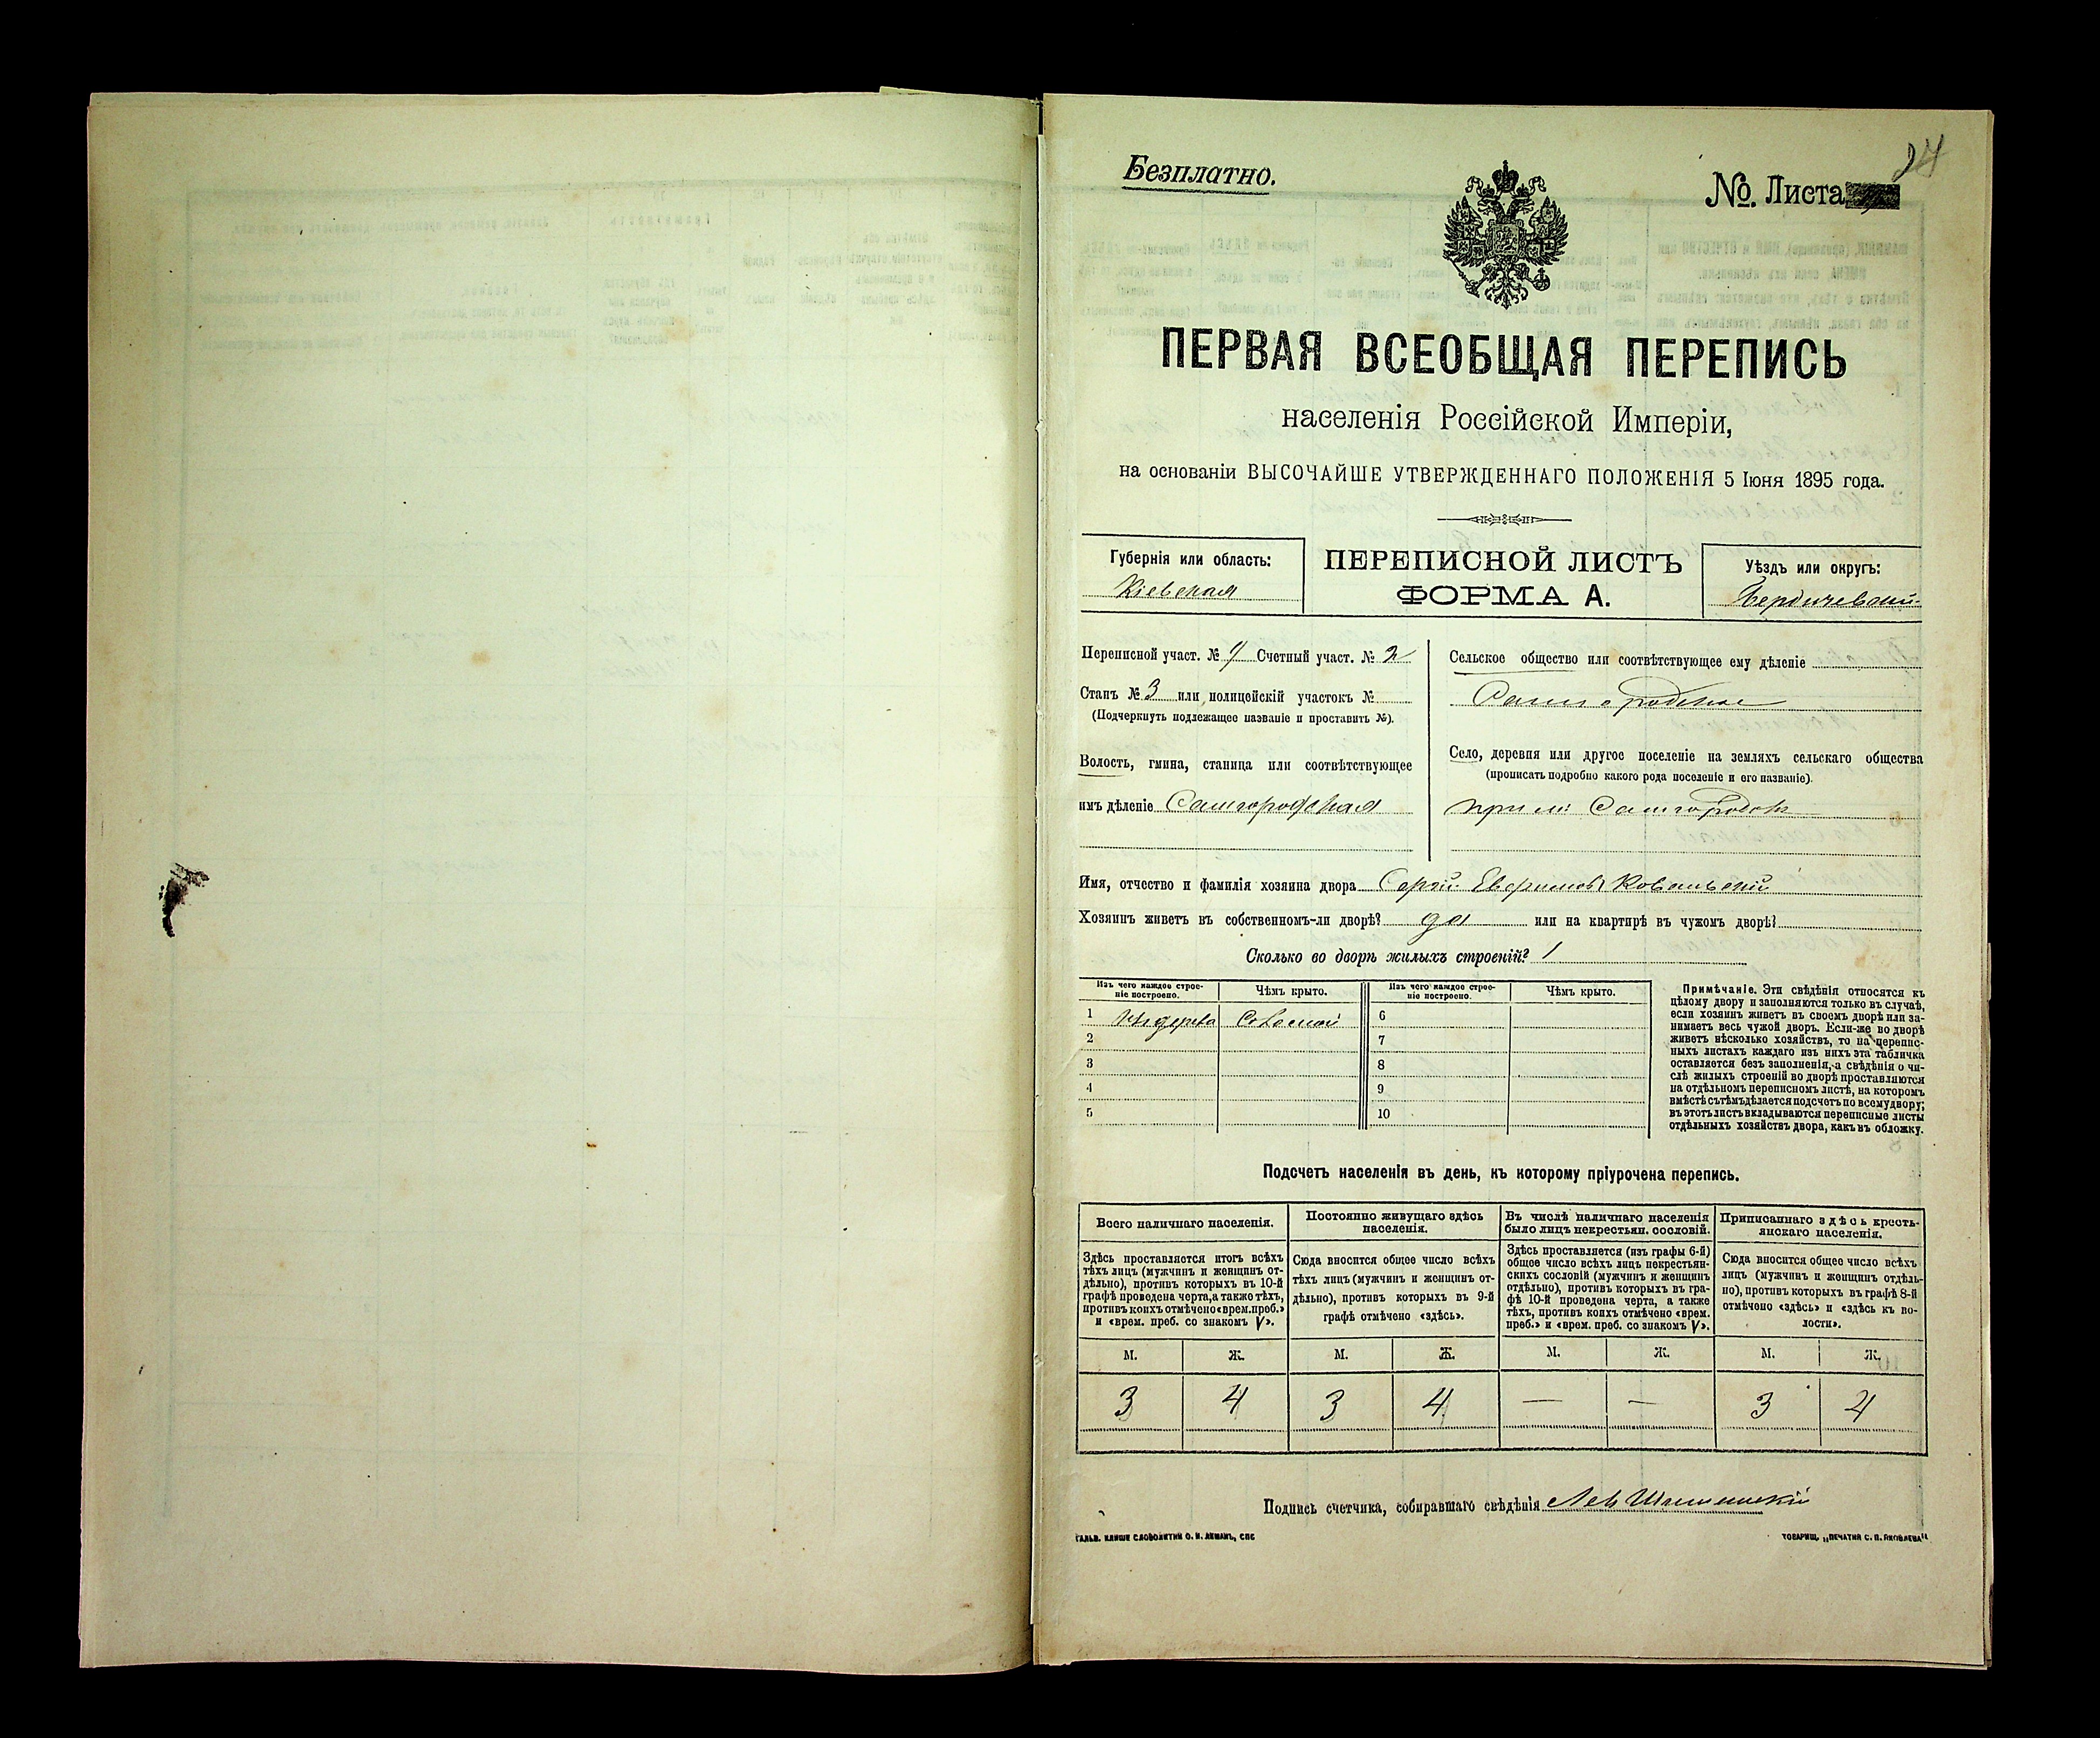 24
Безплатно.
№. Листа
ПЕРВАЯ ВСЕОБЩАЯ ПЕРЕПИСЬ
населенія Россійской Имперіи,
на основаніи ВЫСОЧАЙШЕ УТВЕРЖДЕННАГО ПОЛОЖЕНІЯ 5 Іюня 1895 года.
Губернія или область:
Кіевская
ПЕРЕПИСНОЙ ЛИСТЪ
ФОРМА А.
Уѣздъ или округъ:
Бердичевскій
Переписной участ. № Счетный участ. № 2
Станъ № 3 или полицейскій участокъ №
(Подчеркнуть подлежащее названіе и проставить №).
Волость, гмина, станица или соотвѣтствующее
имъ дѣленіе Самгородская
Сельское общество или соотвѣтствующее ему дѣленіе
Самгородское
Село, деревня или другое поселеніе на земляхъ сельскаго общества
(прописать подробно какого рода поселеніе и его названіе).
при м. Самгородокъ
Имя, отчество и фамилія хозяина двора Сергій Евфимовъ Ковальскій
Хозяинъ живетъ въ собственномъ-ли дворѣ? да или на квартирѣ въ чужомъ дворѣ?
Сколько во дворѣ жилыхъ строеній? 1
Изъ чего каждое строе-
ніе построено.
Чѣмъ крыто.
Изъ чего каждое строе-
ніе построено.
Чѣмъ крыто.
1 Изъ дерева Соломой 6
2 7
3 8
4 9
5 10
Примѣчаніе. Эти свѣдѣнія относятся къ
цѣлому двору и заполняются только въ случаѣ,
если хозяинъ живетъ въ своемъ дворѣ или за-
нимаетъ весь чужой дворъ. Если-же во дворѣ
живетъ нѣсколько хозяйствъ, то на перепис-
ныхъ листахъ каждаго изъ нихъ эта табличка
оставляется безъ заполненія, а свѣдѣнія о чи-
слѣ жилыхъ строеній во дворѣ проставляются
на отдѣльномъ переписномъ листѣ, на которомъ
вмѣстѣ съ тѣмъ дѣлается подсчетъ по всему двору;
въ этотъ листъ вкладываются переписные листы
отдѣльныхъ хозяйствъ двора, какъ въ обложку.
Подсчетъ населенія въ день, къ которому пріурочена перепись.
Всего наличнаго населенія.
Здѣсь проставляется итогъ всѣхъ
тѣхъ лицъ (мужчинъ и женщинъ от-
дѣльно), противъ которыхъ въ 10-й
графѣ проведена черта, а также тѣхъ,
противъ коихъ отмѣчено «врем. преб.»
и «врем. преб. со знакомъ V».
Постоянно живущаго здѣсь
населенія.
Сюда вносится общее число всѣхъ
тѣхъ лицъ (мужчинъ и женщинъ от-
дѣльно), противъ которыхъ въ 9-й
графѣ отмѣчено «здѣсь».
Въ числѣ наличнаго населенія
было лицъ некрестьян. сословій.
Здѣсь проставляется (изъ графы 6-й)
общее число всѣхъ лицъ некрестьян-
скихъ сословій (мужчинъ и женщинъ
отдѣльно), противъ которыхъ въ гра-
фѣ 10-й проведена черта, а также
тѣхъ, противъ коихъ отмѣчено «врем.
преб.» и «врем. преб. со знакомъ V».
Приписаннаго здѣсь кресть-
янскаго населенія.
Сюда вносится общее число всѣхъ
лицъ (мужчинъ и женщинъ отдѣль-
но), противъ которыхъ въ графѣ 8-й
отмѣчено «здѣсь» и «здѣсь къ во-
лости».
М. Ж. М. Ж. М. Ж. М. Ж.
3 4 3 4 — — 3 4
Подпись счетчика, собиравшаго свѣдѣнія Левъ
ГАЛЬВ. КЛИШЕ СЛОВОЛИТНИ О. И. ЛЕМАНЪ, СПБ
ТОВАРИЩ. „ПЕЧАТНЯ С. П. ЯКОВЛЕВА"